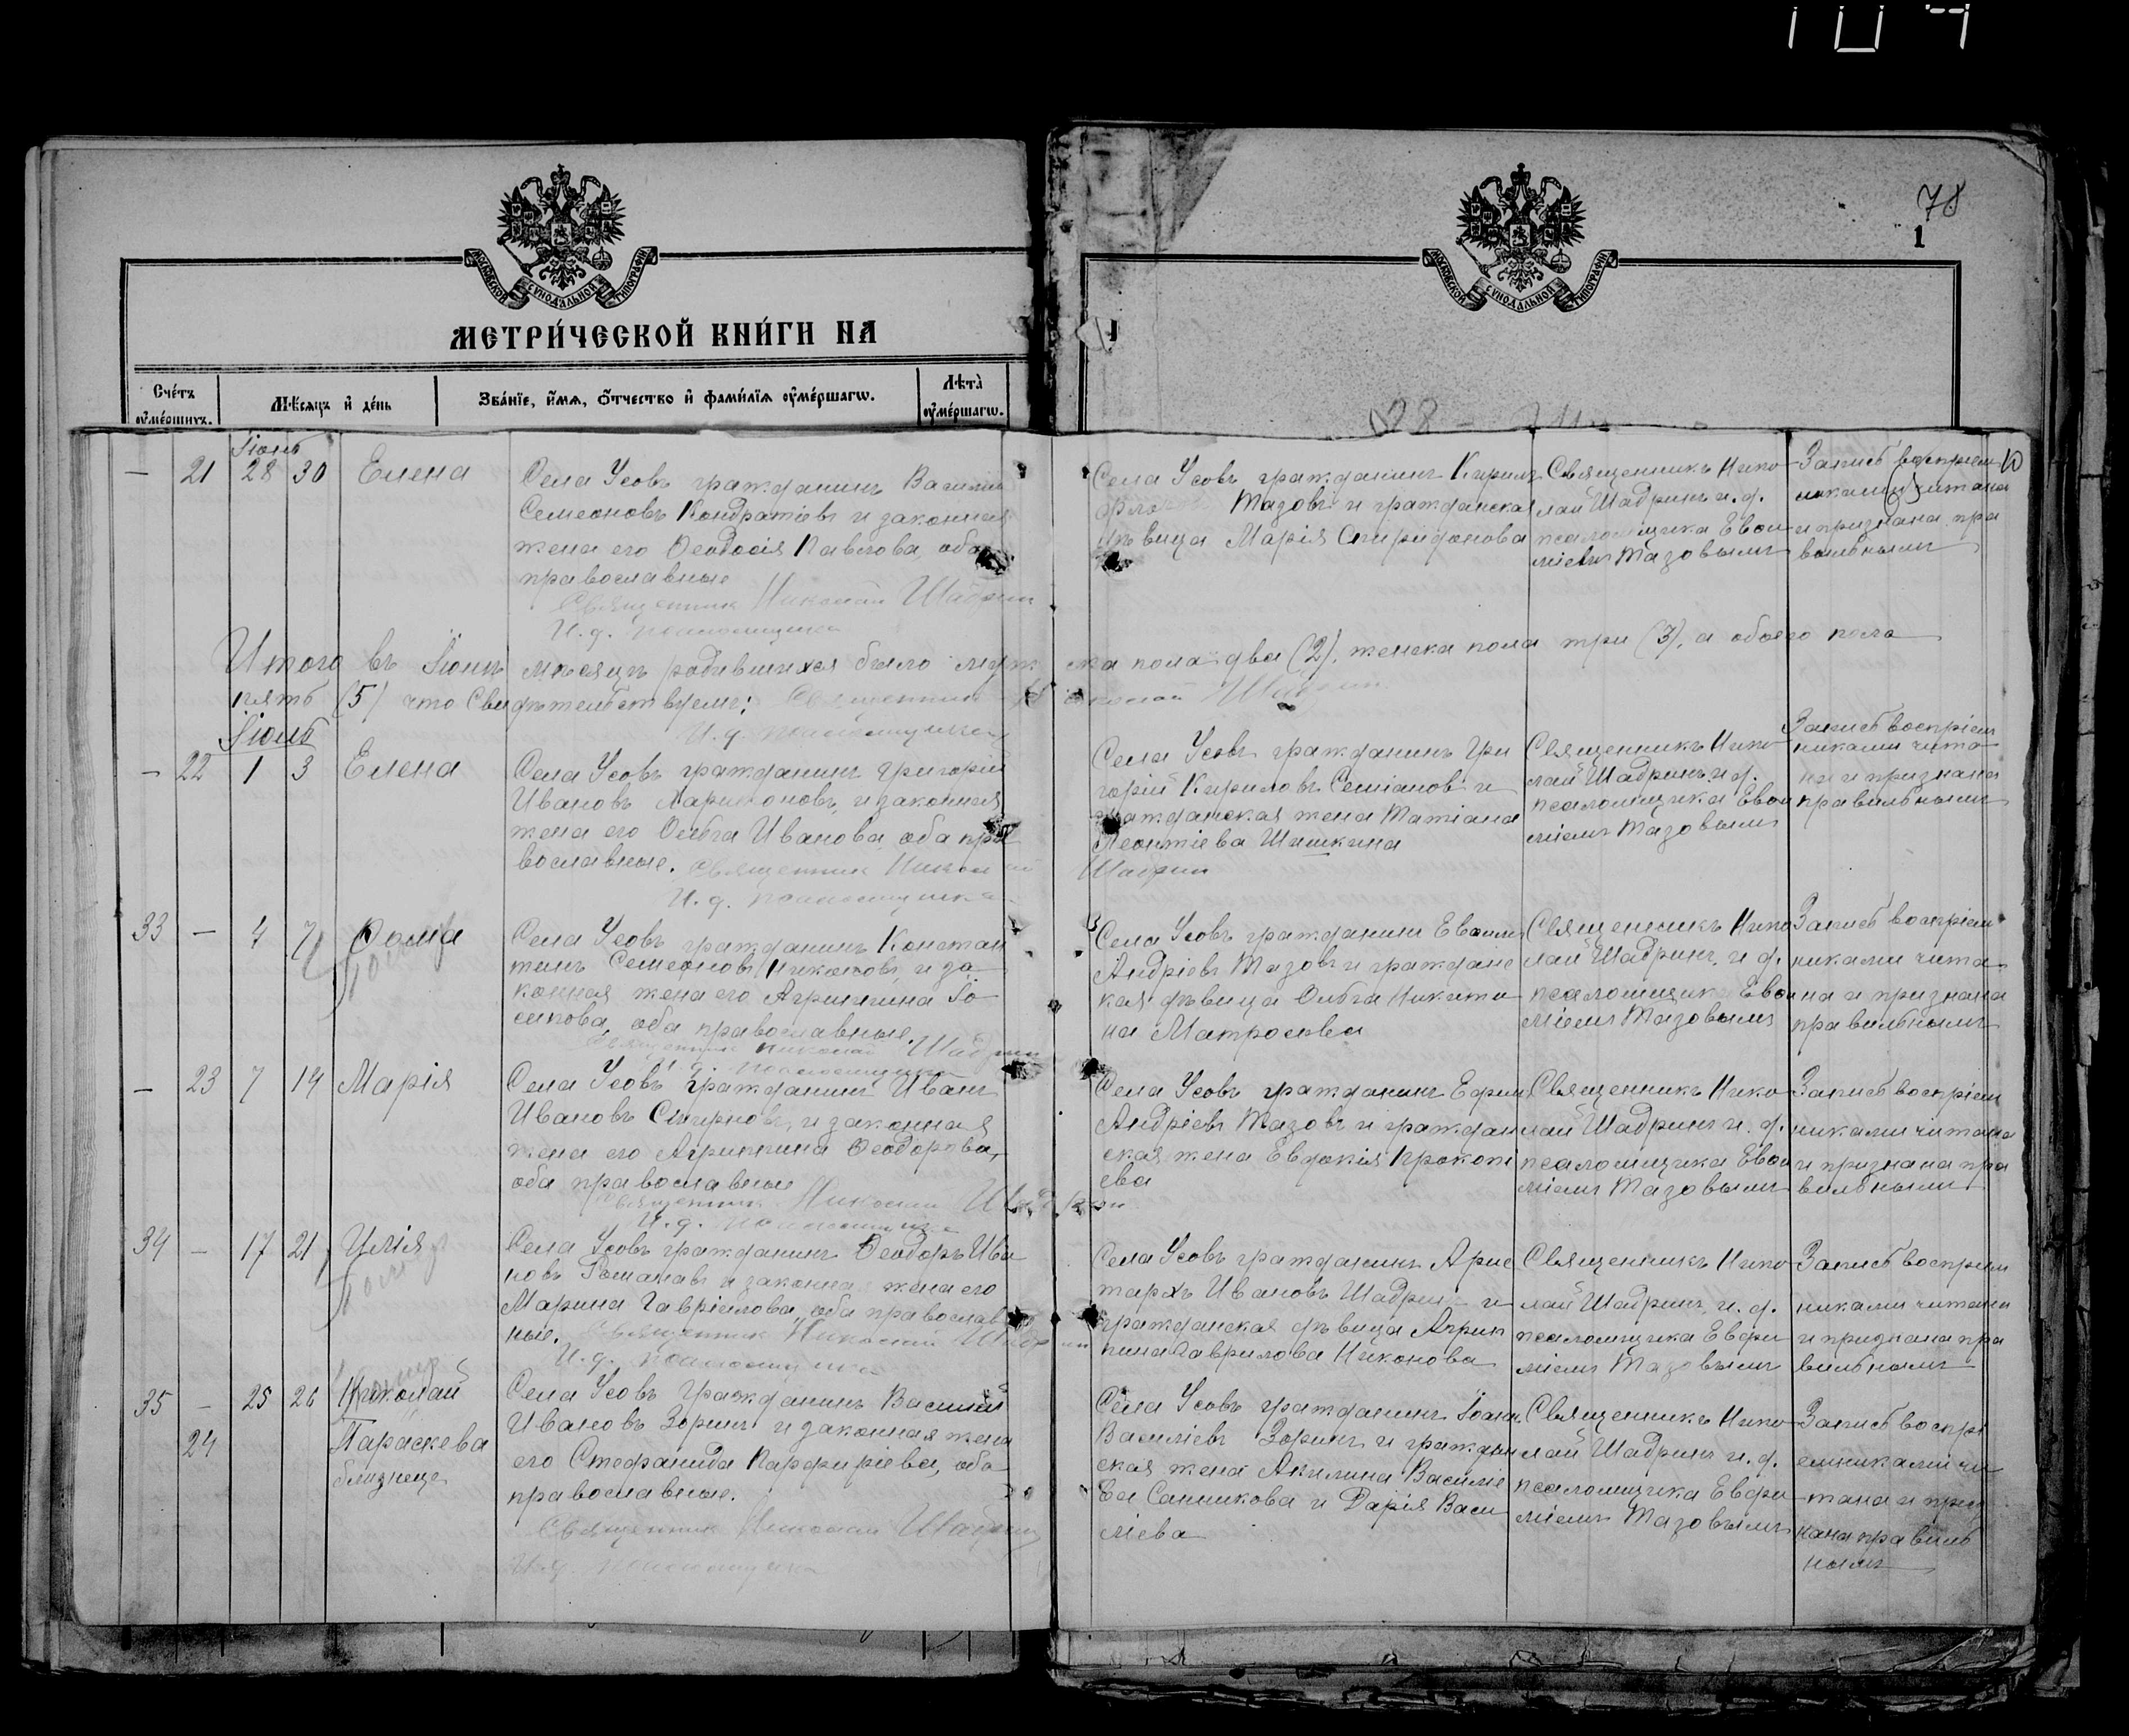 78
1
МОСКОВСКОЙ СѴНОДАЛЬНОЙ ТИПОГРАФІИ
МОСКОВСКОЙ СѴНОДАЛЬНОЙ ТИПОГРАФІИ
МЕТРИ́ЧЕСКОЙ КНИ́ГИ НА
Сче́тъ оуме́ршихъ.
Мѣ́сяцъ и де́нь
Зва́нїе, и́мя, о́тчество и фами́лїя оуме́ршагѡ.
Лѣта̀ оуме́ршагѡ.
Іюнь
— 21 28 30 Елена
Села Усовъ гражданинъ Василій
Семеоновъ Кондратіевъ и законная
жена его Ѳеодосія Павлова, оба
православные
Священник Николай Шадрин
И. д. псаломщика
Села Усовъ гражданинъ Кирилъ
Тазовъ и гражданская
дѣвица Марія Спиридонова
Священникъ Нико
лай Шадринъ и. д.
псаломщика Евѳи
міемъ Тазовымъ
Запись воспріем
никами читана
и признана пра
вильнымъ
Итого въ Іюнѣ мѣсяцѣ родившихся было муж ска пола два (2), женска пола три (3), а обоего пола
пять (5) что свидѣтельствуемъ: Священник Николай Шадрин
И. д. псаломщика
Іюль
— 22 1 3 Елена
Села Усовъ гражданинъ Григорій
Ивановъ Ларионовъ, и законная
жена его Ольга Иванова, оба пра
вославные. Священник Николай
Шадрин
И. д. псаломщика
Села Усовъ гражданинъ Гри
горій Кириловъ Семіановъ и
гражданская жена Татіана
Леонтіева Шишкина
Священникъ Нико
лай Шадринъ и. д.
псаломщика Евѳи
міемъ Тазовымъ
Запись воспріем
никами чита
на и признана
правильнымъ
33 — 4 7 Ѳома
Села Усовъ гражданинъ Констан
тинъ Семеоновъ Никоновъ, и за
конная жена его Агриппина Іо
сипова, оба православные.
Священник Николай Шадрин
И. д. псаломщика
Села Усовъ гражданинъ Евѳимъ
Андріевъ Тазовъ и граждан
кая дѣвица Ольга Никити
на Матросова
Священникъ Нико
лай Шадринъ. и д.
псаломщика Евѳи
міемъ Тазовымъ
Запись воспріем
никами чита
на и признана
правильнымъ
— 23 7 14 Марія
Села Усовъ гражданинъ Иванъ
Ивановъ Смирновъ, и законная
жена его Агриппина Ѳеодорова,
оба православные
Священник Николай Шадрин
И. д. псаломщика
Села Усовъ гражданинъ Ефимъ
Андріевъ Тазовъ и граждан
ская жена Евдокія Прокопі
ева
Священникъ Нико
лай Шадринъ и. д.
псаломщика Евѳи
міемъ Тазовымъ
Запись воспріем
никами читана
и признана пра
вильнымъ
34 — 17 21 Илія
Села Усовъ гражданинъ Ѳеодоръ Ива
новъ Романовъ и законная жена его
Марина Гавріилова, оба православ
ные. Священник Николай Шадрин
И. д. псаломщика
Села Усовъ гражданинъ Арис
тархъ Ивановъ Шадринъ и
гражданская дѣвица Агрип
пина Гаврилова Никонова
Священникъ Нико
лай Шадринъ, и. д.
псаломщика Евфи
міемъ Тазовымъ
Запись воспріем
никами читана
и признана пра
вильнымъ
35 — 25 26 Николай
24 Параскева
близнеце
Села Усовъ гражданинъ Василій
Ивановъ Зоринъ и законная жена
его Стефанида Парфиріева, оба
православные.
Священник Николай Шадрин
И. д. псаломщика
Села Усовъ гражданинъ Іоанъ
Василіевъ Зоринъ и граждан
ская жена Акилина Василіе
ва Санникова и Дарія Васи
ліева
Священникъ Нико
лай Шадринъ и. д.
псаломщика Евфи
міемъ Тазовымъ
Запись воспрі
емниками чи
тана и приз
нана правиль
нымъ